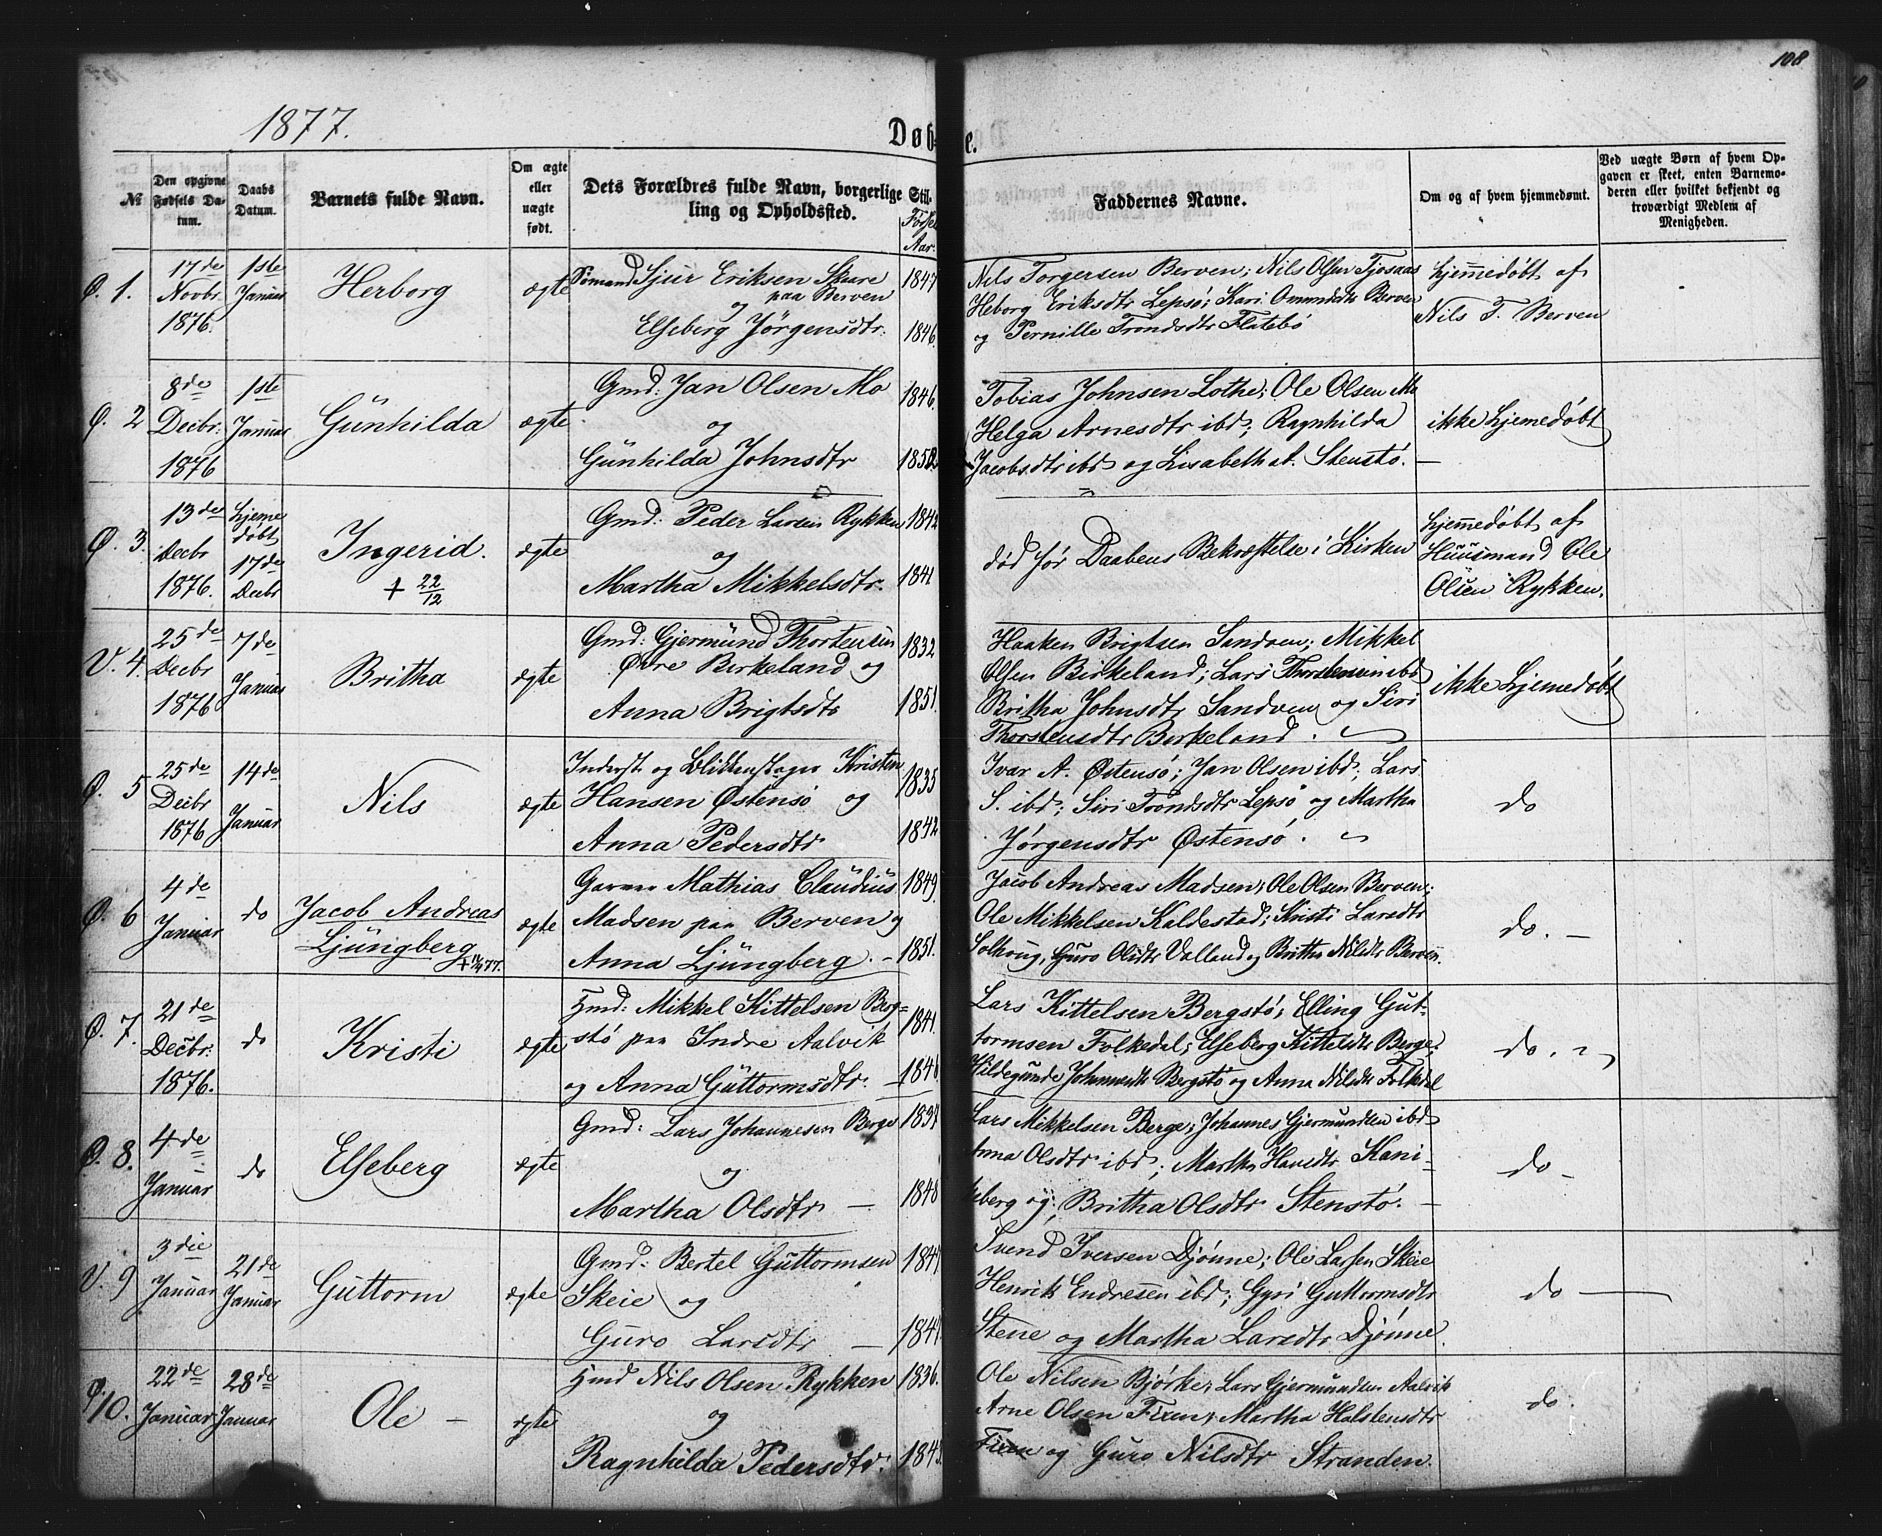 108
1877.
Døbte.
№
Den opgivne Fødsels Datum.
Daabs Datum.
Barnets fulde Navn.
Om ægte eller uægte født.
Dets Forældres fulde Navn, borgerlige Stilling og Opholdssted.
Aar.
Faddernes Navne.
Om og af hvem hjemmedømt.
Ved uægte Børn af hvem Opgaven er skeet, enten Barnemoderen eller hvilket bekjendt og troværdigt Medlem af Menigheden.
Ø. 1.
17de Novbr. 1876.
1ste Januar
Herborg
ægte
Sømand Sjur Eriksen Skare
og paa Berven
Elseberg Jørgensdtr.
1847
1846.
Nils Torgersen Berven; Nils Olsen Tjosaas
Heborg Eriksdtr Lepsö; Kari Ommundsdtr Berven
og Pernille Trondsdtr Flatebö
hjemmedøbt af
Nils T. Berven
Ø. 2
8de Decbr. 1876
1ste Januar
Günhilda
ægte
Gmd: Jan Olsen Mo
og
Günhilda Johnsdtr
1846.
1852
Tobias Johnsen Lothe; Ole Olsen Mo
Helga Arnesdtr ibd; Ragnhilda
Jacobsdtr ibd og Lisabeth A. Stenstö.
ikke hjemedøbt
Ø. 3.
13de Decbr 1876.
hjeme døbt 17de Decbr
Ingerid.
+ 22/12
ægte
Gmd: Peder Larsen Rykken
og
Martha Mikkelsdtr.
1842
1841
død før Daabens Bekræftelse i Kirken
hjemmedøbt af
Huusmand Ole
Olsen Rykken.
V. 4.
25de Decbr 1876
7de Januar
Britha
ægte
Gmd: Gjermünd Thorstensen
Øvre Birkeland og
Anna Brigtsdtr
1832
1851.
Haaken Brigtsen Sandven; Mikkel
Olsen Birkeland; Lars Thorstensen ibd
Britha Johnsdtr Sandven og Siri
Thorstensdtr Birkeland.
ikke hjemedøbt
Ø. 5
25de Decbr 1876
14de Januar
Nils
ægte
Inderst og Blikkenslager Kristen
Hansen Østensö og
Anna Pedersdtr
1835
1842
Ivar A. Østensö; Jan Olsen ibd; Lars
S. ibd; Siri Trondsdtr Lepsö og Martha
Jörgensdtr Østensö.
do
Ø. 6
4de Januar
do
Jacob Andreas
Ljüngberg
ægte
Garver Mathias Claudius
Madsen paa Berven og
Anna Ljüngberg.
1849.
1851.
Jacob Andreas Madsen; Ole Olsen Berven;
Ole Mikkelsen Kaldestad; Kristi Larsdtr
Solhoug, Guro Olsdtr Valland og Britha Nilsdtr Berven.
do.
Ø. 7.
21de Decbr. 1876.
do
Kristi
ægte
Hmd: Mikkel Kittelsen Berg-
stö paa Indre Aalvik
og Anna Güttormsdtr.
1841.
1846
Lars Kittelsen Bergstö; Elling Gut-
tormsen Folkedal; Elseberg Kittelsdtr Berge;
Hildegunde Johannesdtr Bergstö og Anna Nilsdtr Folkedal
do.
Ø. 8.
4de Januar
do
Elseberg
ægte
Gmd: Lars Johannesen Berge
og
Martha Olsdtr
1837
1848
Lars Mikkelsen Berge; Johannes Gjermundsen ibd
Anna Olsdtr ibd; Martha Hansdtr Kani-
keberg og Britha Olsdtr Stenstö.
do
V. 9
3die Januar
21de Januar
Güttorm
ægte
Gmd: Bertel Güttormsen
Skeie og
Guro Larsdtr
1844
1844.
Svend Iversen Djönne; Ole Larsen Skeie
Henrik Endresen ibd; Gyri Guttormsdtr
Stene og Martha Larsdtr Djönne.
do
Ø. 10.
22de Januar
28de Januar
Ole
ægte
Hmd Nils Olsen Rykken
og
Ragnhilda Pedersdtr.
1836.
1843
Ole Nilsen Bjørke; Lars Gjermundsen Aalvik
Arne Olsen Fixen; Martha Halstensdtr
Fixen og Guro Nilsdtr Stranden.
do.